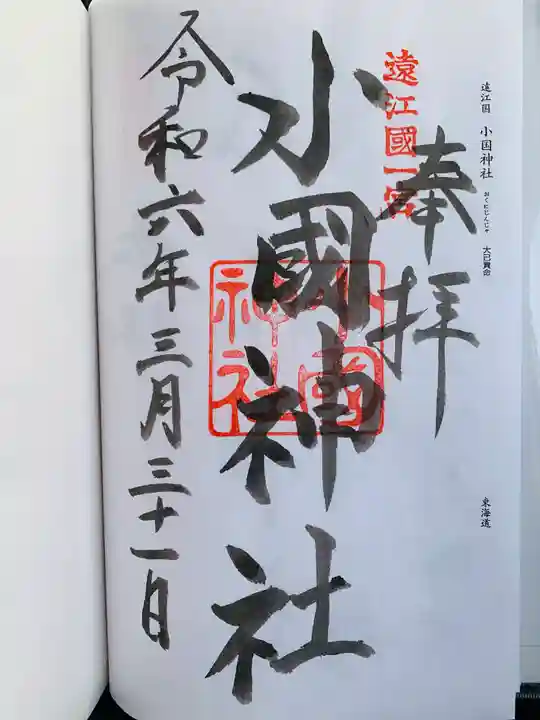 遠江国 小国神社 おくにじんじゃ 大己貴命
東海道
遠江國一宮
奉拝
小國神社
小國神社
令和六年三月三十一日